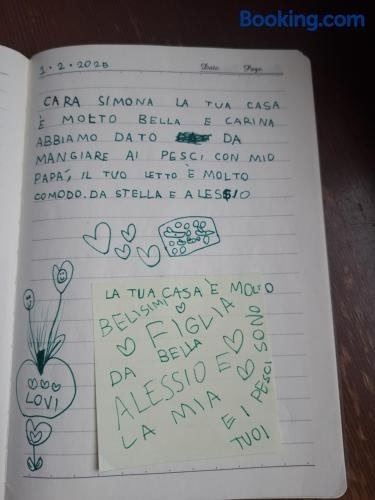 Booking.com
1.2.2025
Date.
Page.
CARA SIMONA LA TUA CASA
È MOLTO BELLA E CARINA
ABBIAMO DATO DA
MANGIARE AI PESCI CON MIO
PAPÀ, IL TUO LETTO È MOLTO
COMODO. DA STELLA E ALESSIO
LOVI
LA TUA CASA È MOLTO
BELLA
E I PESCI SONO
TUOI
BELISIMI
DA
ALESSIO E
LA MIA
FIGLIA